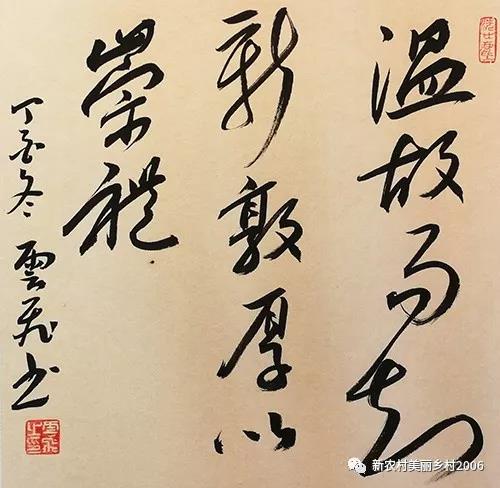 温故而知
新敦厚以
崇禮
丁酉冬 雲飛书
新农村美丽乡村2006